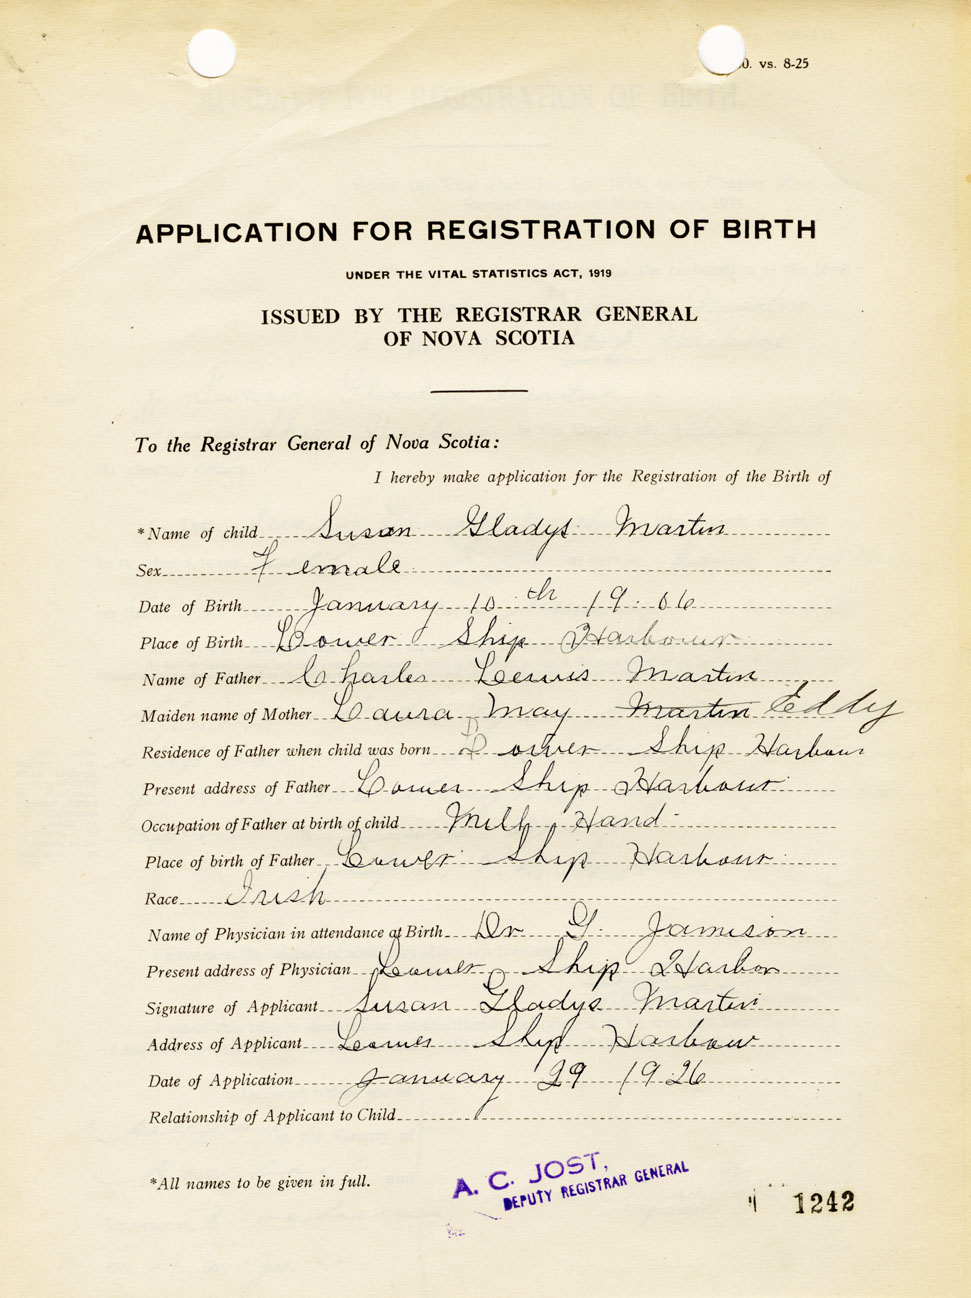 0. vs. 8-25
APPLICATION FOR REGISTRATION OF BIRTH
UNDER THE VITAL STATISTICS ACT, 1919
ISSUED BY THE REGISTRAR GENERAL
OF NOVA SCOTIA
To the Registrar General of Nova Scotia:
I hereby make application for the Registration of the Birth of
*Name of child Susan Gladys Martin
Sex Female
Date of Birth January 10th 1906
Place of Birth Lower Ship Harbour
Name of Father Charles Lewis Martin
Maiden name of Mother Laura May Martin Eddy
Residence of Father when child was born Lower Ship Harbour
Present address of Father Lower Ship Harbour
Occupation of Father at birth of child Mill Hand
Place of birth of Father Lower Ship Harbour
Race Irish
Name of Physician in attendance at Birth Dr G. Jamison
Present address of Physician Lower Ship Harbor
Signature of Applicant Susan Gladys Martin
Address of Applicant Lower Ship Harbour
Date of Application January 29 1926
Relationship of Applicant to Child
*All names to be given in full.
A. C. JOST,
DEPUTY REGISTRAR GENERAL
1242